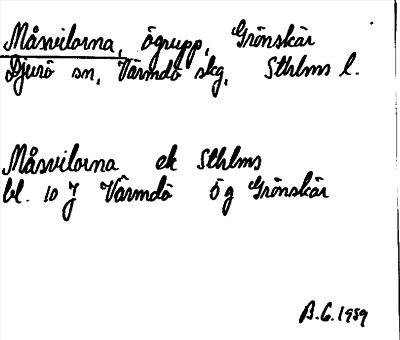 Måsvilorna, ögrupp, Grönskär
Djurö sn, Värmdö skg, Sthlms l.
Måsvilorna ek Sthlms
bl. 10 J Värmdö ög Grönskär
B.G. 1959